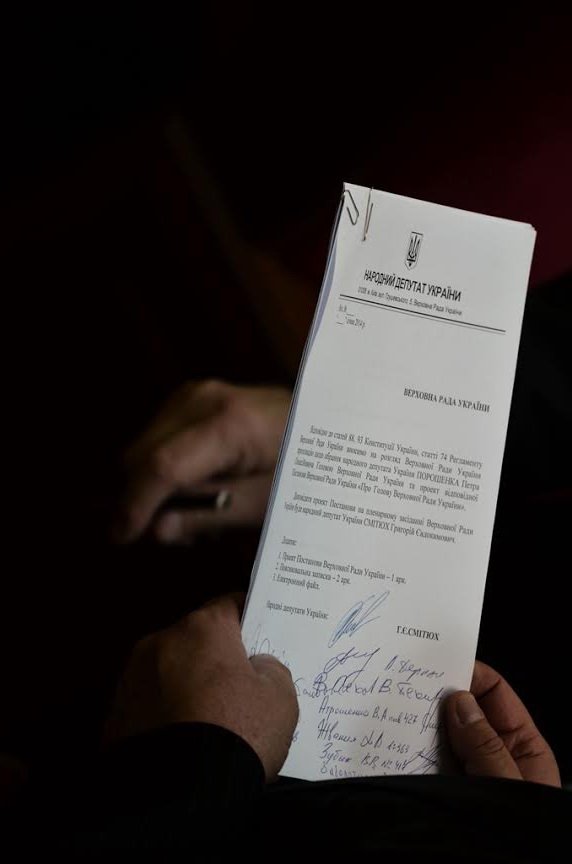 НАРОДНИЙ ДЕПУТАТ УКРАЇНИ
м. Київ, вул. Грушевського, 5, Верховна Рада України
ВЕРХОВНА РАДА УКРАЇНИ
Відповідно до статей 88, 93 Конституції України, статті 74 Регламенту
Верховної Ради України вносимо на розгляд Верховної Ради України
пропозицію щодо обрання народного депутата України ПОРОШЕНКА Петра
Олексійовича Головою Верховної Ради України та проект відповідної
Постанови Верховної Ради України «Про Голову Верховної Ради України».
Доповідати проект Постанови на пленарному засіданні Верховної Ради
України буде народний депутат України СМІТЮХ Григорій Євдокимович.
Додаток:
1. Проект Постанови Верховної Ради України – 1 арк.
2. Пояснювальна записка – 2 арк.
3. Електронний файл.
Народні депутати України:
Г.Є.СМІТЮХ
Жванія
Зубик